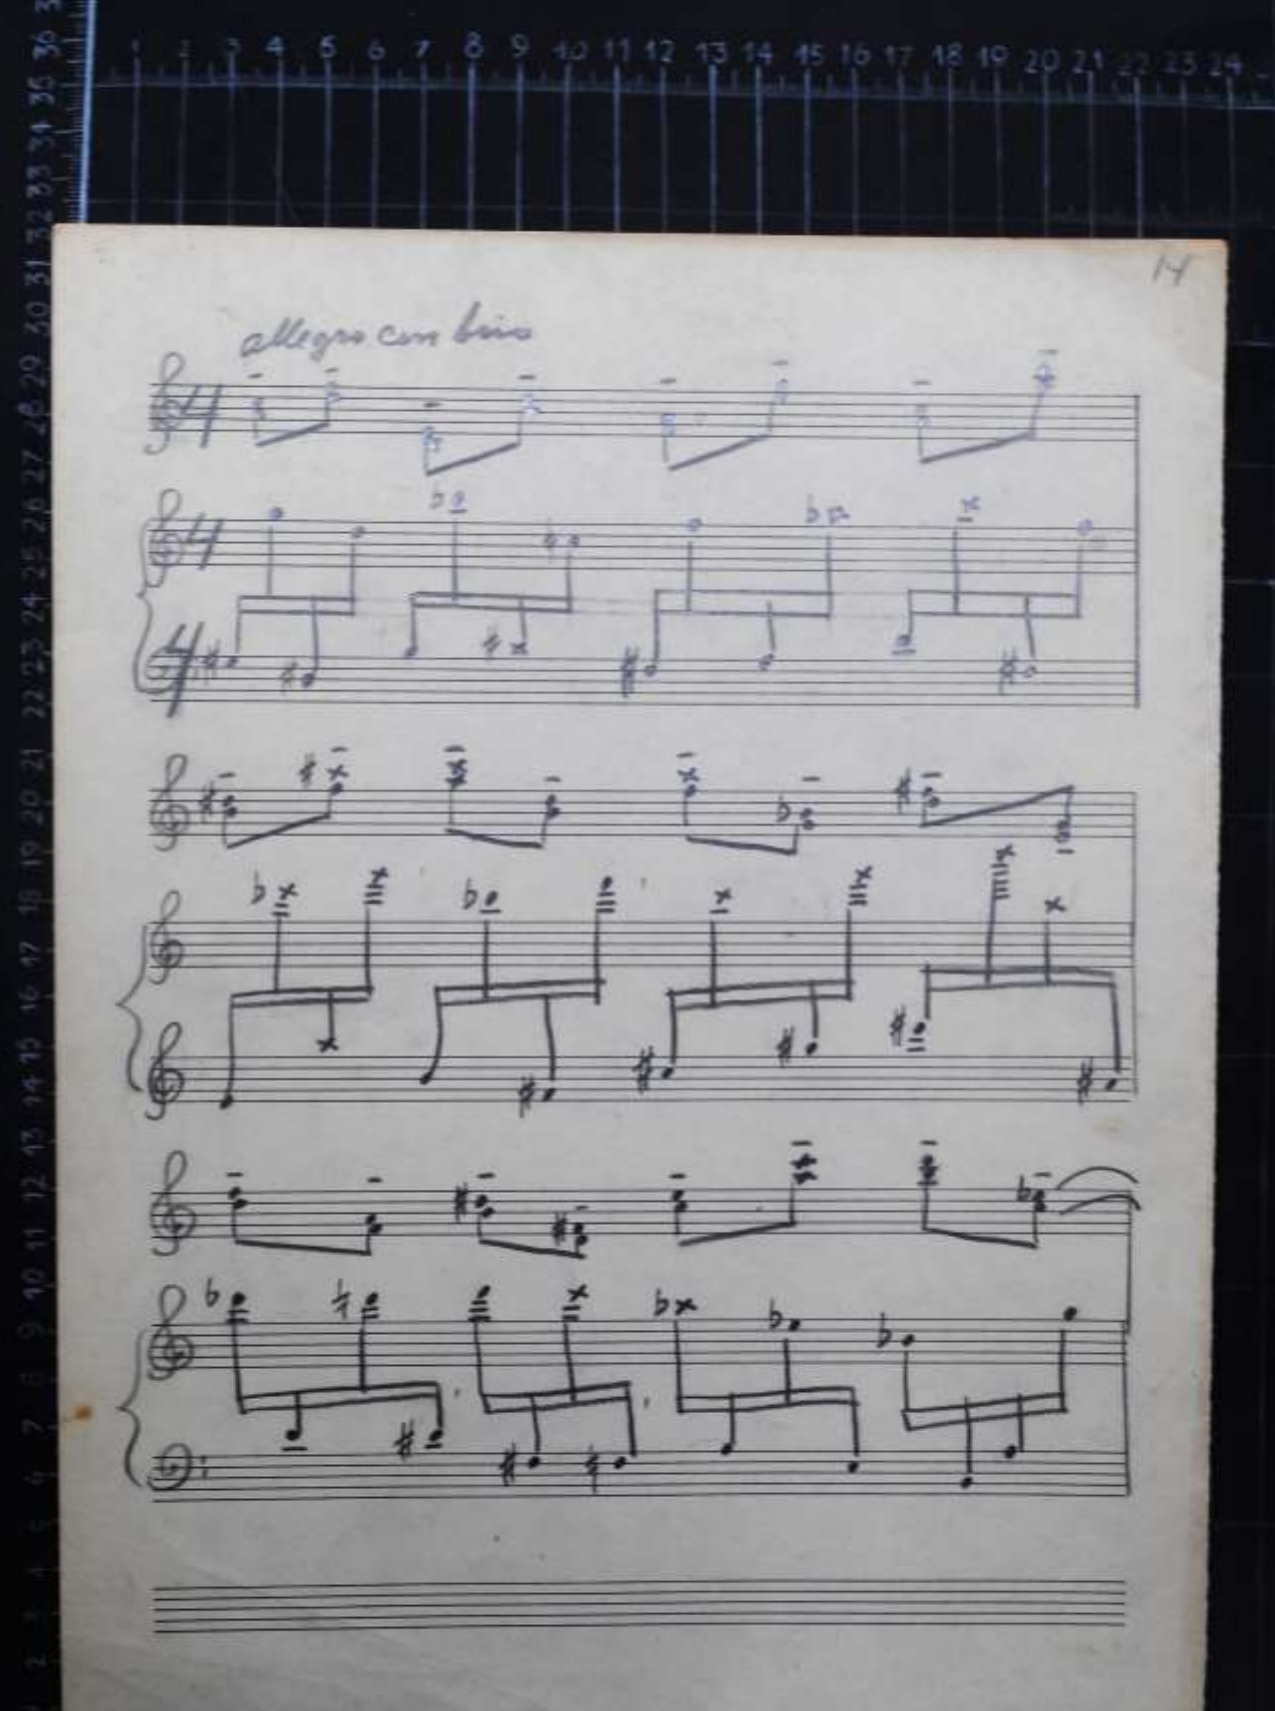 1 2 3 4 5 6 7 8 9 10 11 12 13 14 15 16 17 18 19 20 21 22 23 24
36
35
34
33
32
31
30
29
28
27
26
25
24
23
22
21
20
19
18
17
16
15
14
13
12
11
10
9
8
7
6
5
4
3
2
14
allegro con brio
4
4
4